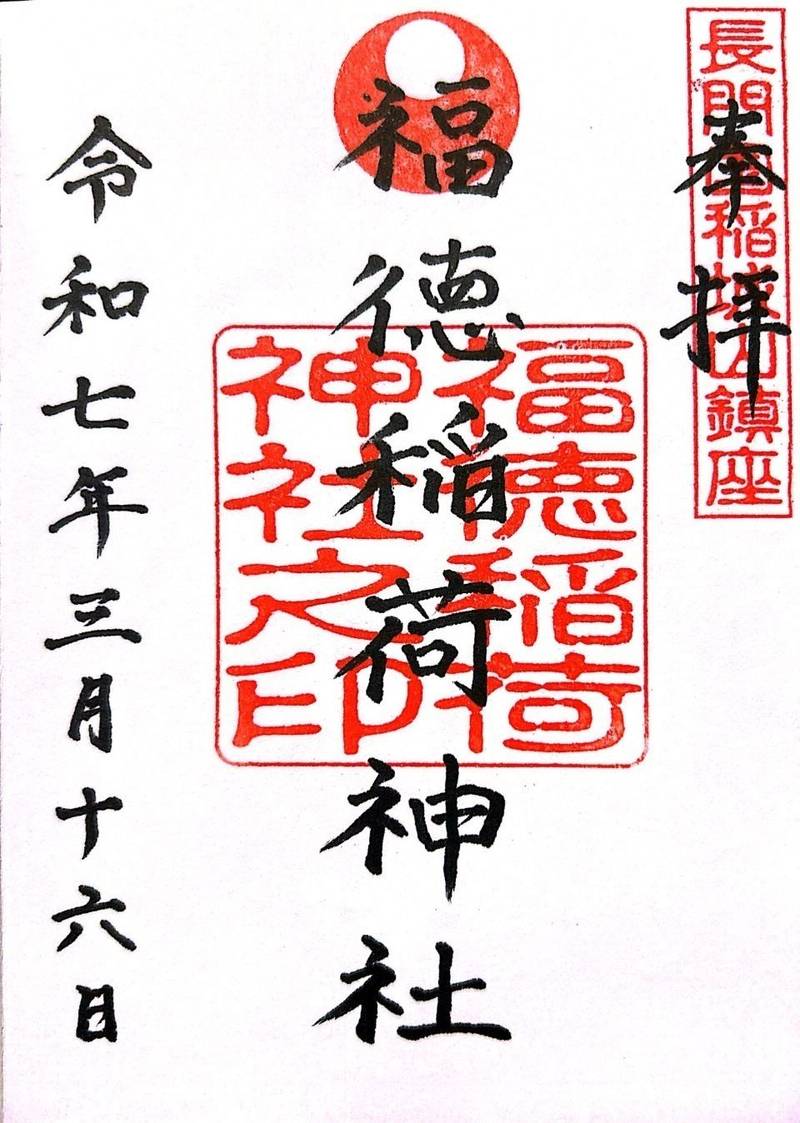 長門国稲城山鎮座
奉拝
福徳稲荷神社
福徳稲荷
神社之印
令和七年三月十六日